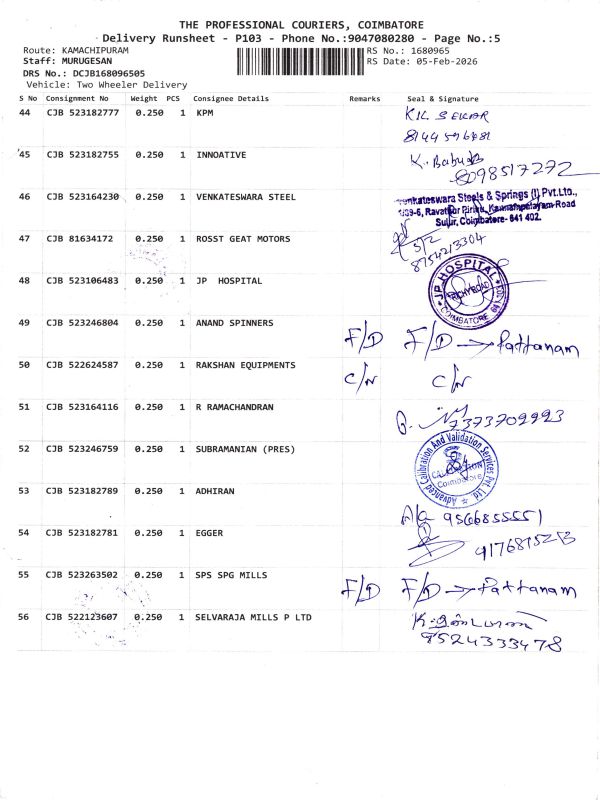 THE PROFESSIONAL COURIERS, COIMBATORE
Delivery Runsheet - P103 - Phone No.:9047080280 - Page No.:5
Route: KAMACHIPURAM RS No.: 1680965
Staff: MURUGESAN RS Date: 05-Feb-2026
DRS No.: DCJB168096505
Vehicle: Two Wheeler Delivery
S No Consignment No Weight PCS Consignee Details Remarks Seal & Signature
44 CJB 523182777 0.250 1 KPM K.K. SEKAR
8144596881
45 CJB 523182755 0.250 1 INNOATIVE K. Babu
8098517272
46 CJB 523164230 0.250 1 VENKATESWARA STEEL
Venkateswara Steels & Springs (I) Pvt.Ltd.,
Sulur, Coimbatore- 641 402.
47 CJB 81634172 0.250 1 ROSST GEAT MOTORS
8754213304
48 CJB 523106483 0.250 1 JP HOSPITAL
JP HOSPITAL
TRICHY ROAD
COIMBATORE
49 CJB 523246804 0.250 1 ANAND SPINNERS F/D F/D → Pattanam
50 CJB 522624587 0.250 1 RAKSHAN EQUIPMENTS C/N C/N
51 CJB 523164116 0.250 1 R RAMACHANDRAN
7373709993
52 CJB 523246759 0.250 1 SUBRAMANIAN (PRES)
Advanced Calibration And Validation Services Pvt. Ltd.
Coimbatore
53 CJB 523182789 0.250 1 ADHIRAN
9566855551
54 CJB 523182781 0.250 1 EGGER
55 CJB 523263502 0.250 1 SPS SPG MILLS F/D F/D → Pattanam
56 CJB 522123607 0.250 1 SELVARAJA MILLS P LTD
9524333478